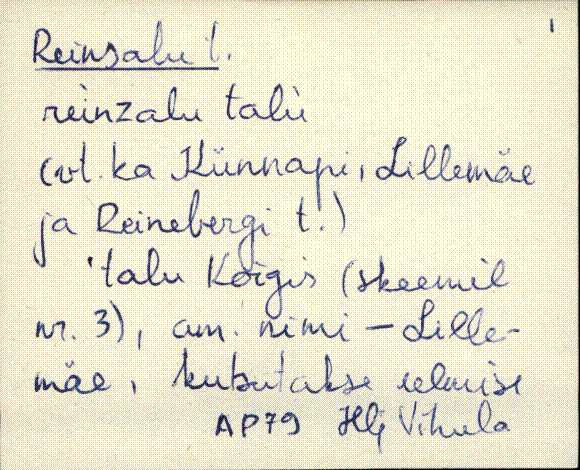 1
Reinsalu t.
reinzalu talu
(vt. ka Künnapi, Lillemäe
ja Reinebergi t.)
talu Koigis (skeemil
nr. 3), am. nimi – Lille-
mäe, kutsutakse eelmise
AP79 Hlj Vihula